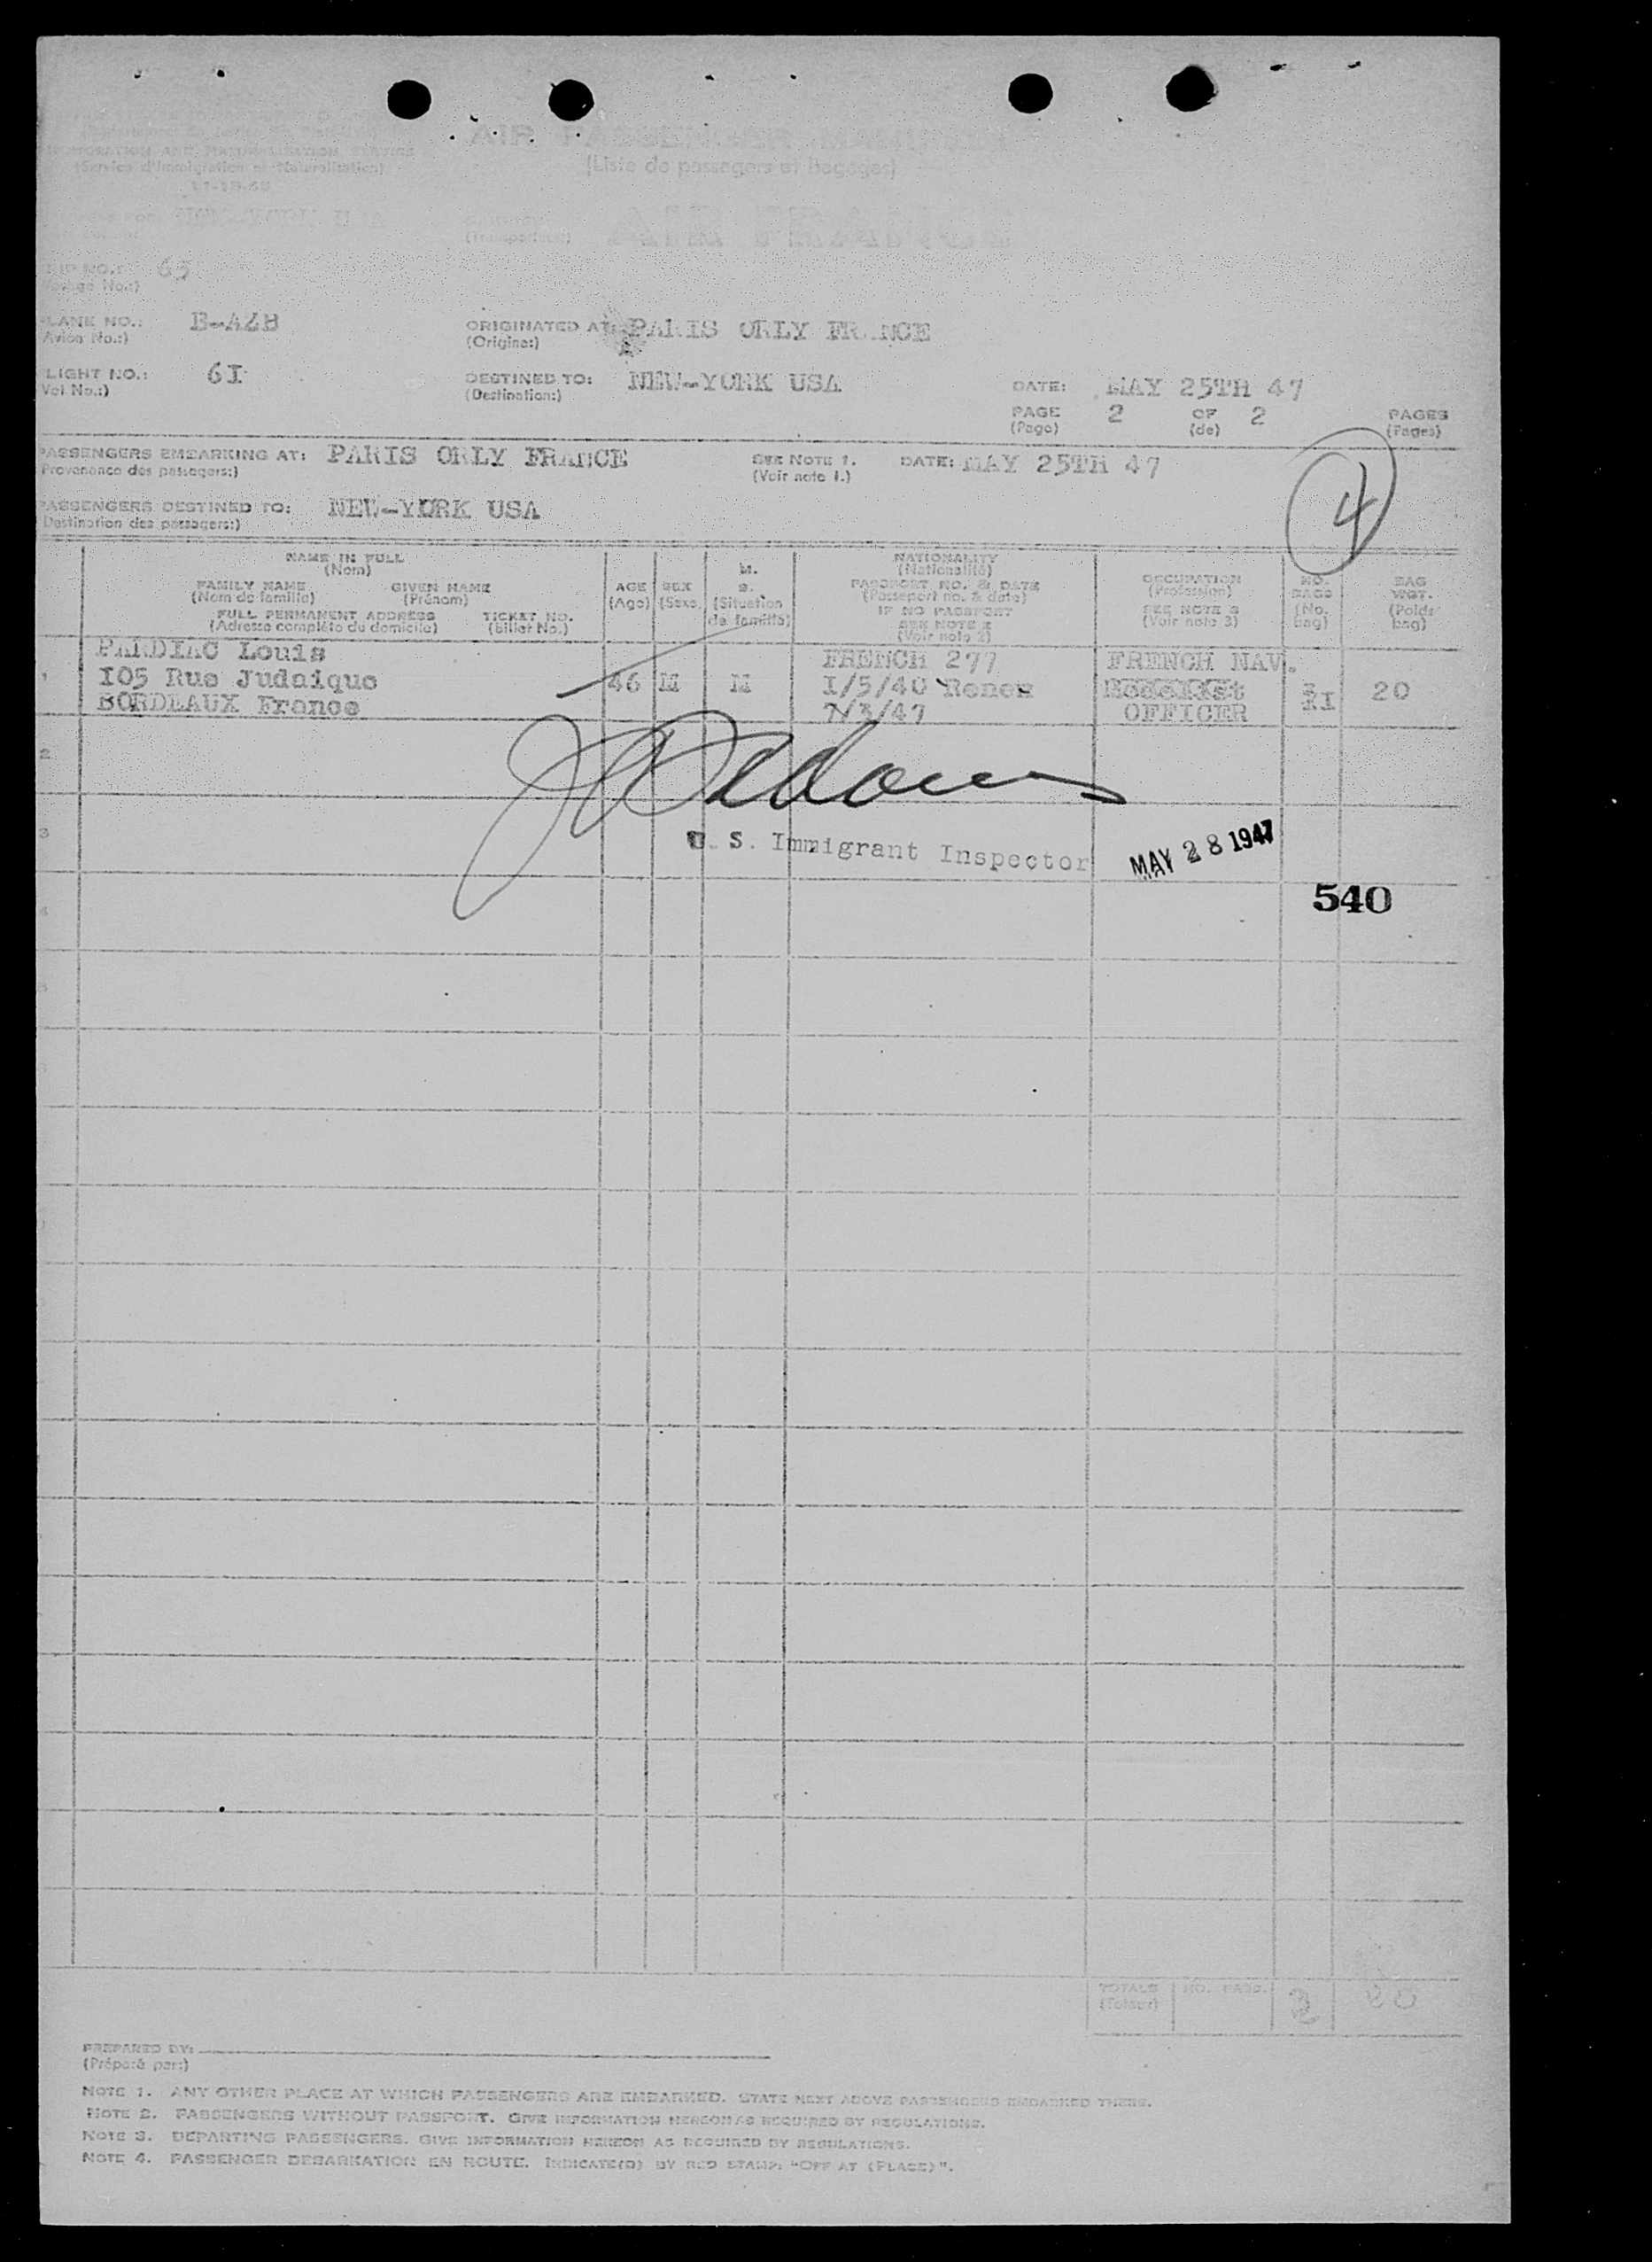 AIR PASSENGER MANIFEST
(Liste de passagers et bagages)
IMMIGRATION AND NATURALIZATION SERVICE
(Service d'Immigration et Naturalisation)
NEW-YORK USA
(Transporteur) AIR FRANCE
65
PLANE NO.: B-AZB ORIGINATED AT PARIS ORLY FRANCE
(Avion No.:) (Origine:)
FLIGHT NO.: 6I DESTINED TO: NEW-YORK USA DATE: MAY 25TH 47
(Vol No.:) (Destination:)
PAGE 2 OF 2 PAGES
(Page) (de) (Pages)
PASSENGERS EMBARKING AT: PARIS ORLY FRANCE SEE NOTE 1. DATE: MAY 25TH 47
(Provenance des passagers:) (Voir note 1.)
4
PASSENGERS DESTINED TO: NEW-YORK USA
(Destination des passagers:)
NAME IN FULL
(Nom)
FAMILY NAME GIVEN NAME
(Nom de famille) (Prénom)
FULL PERMANENT ADDRESS TICKET NO.
(Adresse complète du domicile) (Billet No.)
AGE
(Age)
SEX
(Sexe)
M.
S.
(Situation
de famille)
NATIONALITY
(Nationalité)
PASSPORT NO. & DATE
(Passeport no. & date)
IF NO PASSPORT
SEE NOTE 2
(Voir note 2)
OCCUPATION
(Profession)
SEE NOTE 3
(Voir note 3)
NO.
BAGS
(No.
bag)
BAG
WGT.
(Poids
bag)
PARDIAC Louis FRENCH 277 FRENCH NAV.
1 105 Rue Judaique 46 M M I/5/40 Renew 20
BORDEAUX France 7/3/47 OFFICER
2
3
U. S. Immigrant Inspector MAY 28 1947
540
4
TOTALS NO. PASS. 20
(Totaux)
PREPARED BY:
(Préparé par:)
NOTE 1. ANY OTHER PLACE AT WHICH PASSENGERS ARE EMBARKED. STATE NEXT ABOVE PASSENGERS EMBARKED THERE.
NOTE 2. PASSENGERS WITHOUT PASSPORT. GIVE INFORMATION HEREON AS REQUIRED BY REGULATIONS.
NOTE 3. DEPARTING PASSENGERS. GIVE INFORMATION HEREON AS REQUIRED BY REGULATIONS.
NOTE 4. PASSENGER DEBARKATION EN ROUTE. INDICATE(D) BY RED STAMP: "OFF AT (PLACE)".